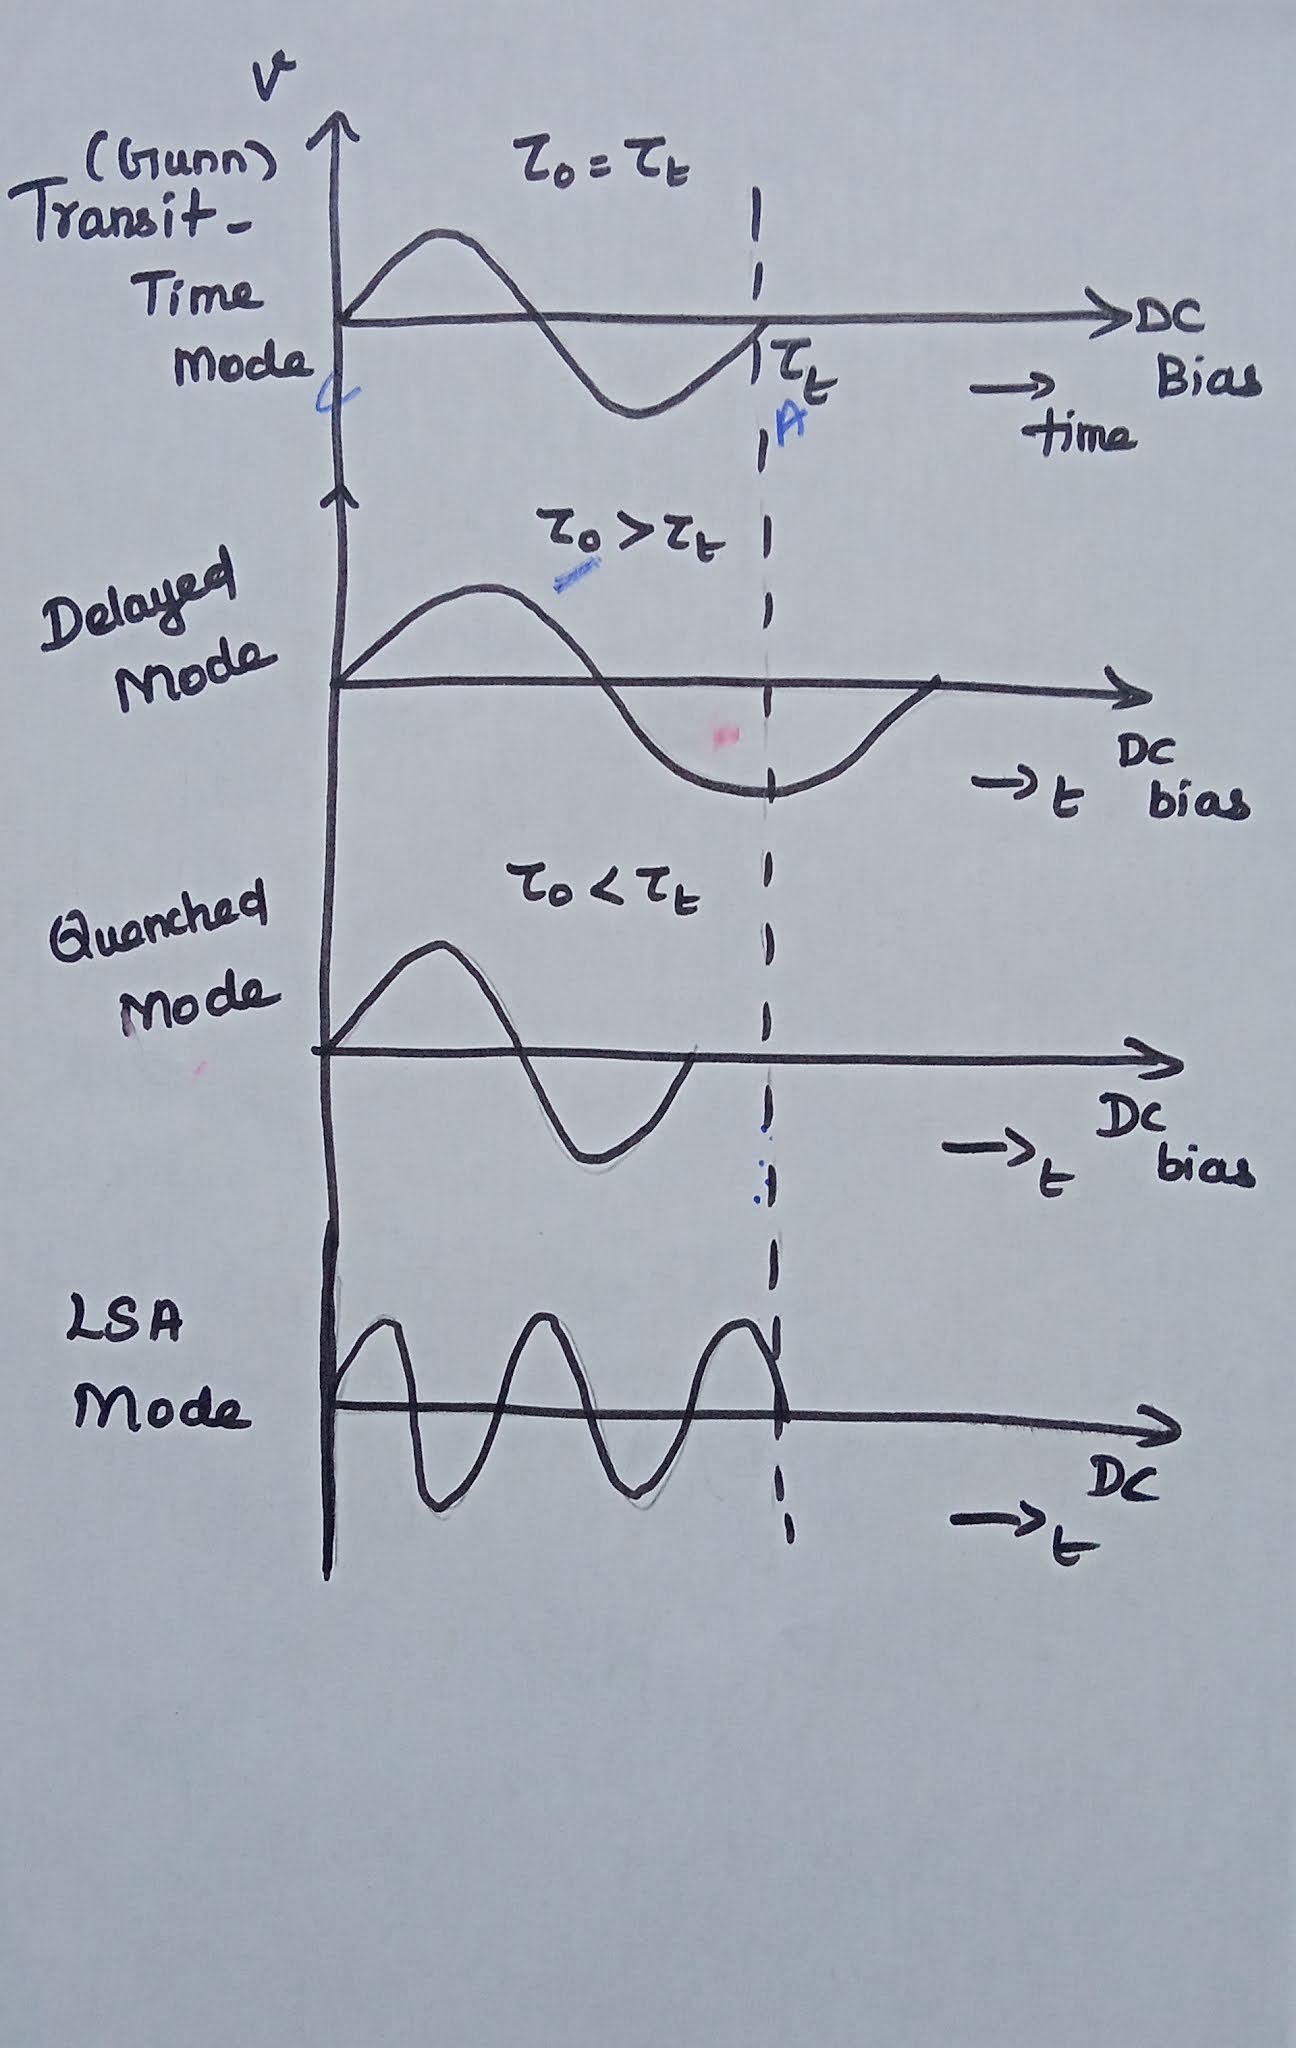 V
(Gunn)
Transit-
Time
Mode
τ₀ = τₜ
τₜ
A
DC
Bias
→
time
Delayed
Mode
τ₀ > τₜ
DC
bias
→ t
Quenched
Mode
τ₀ < τₜ
DC
bias
→ t
LSA
Mode
DC
→ t